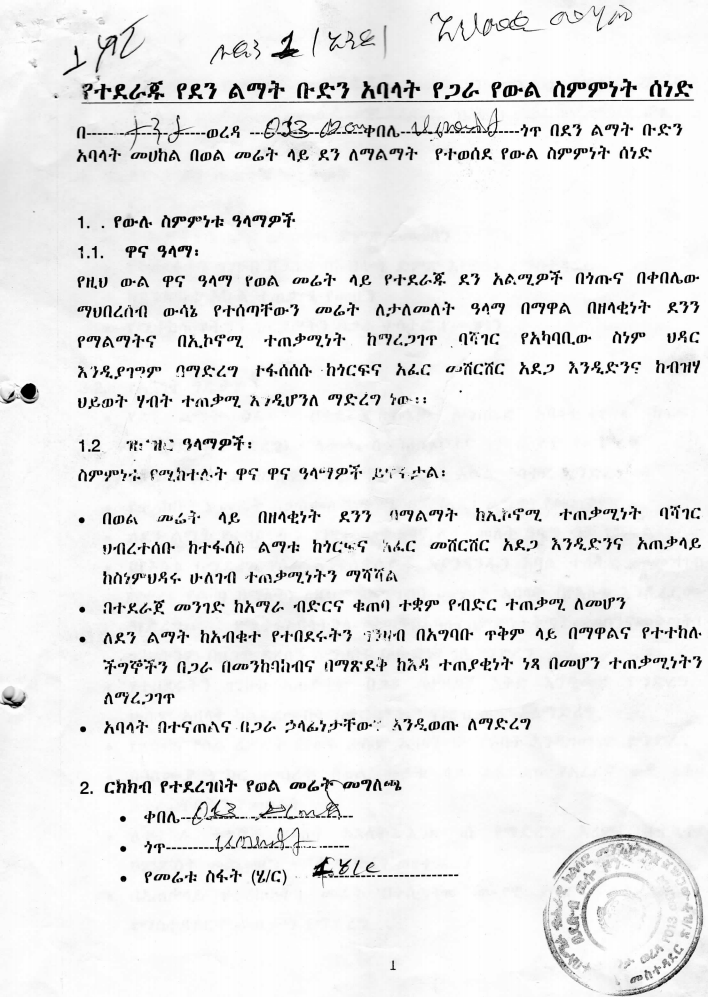 የተደራጁ የደን ልማት ቡድን አባላት የጋራ የውል ስምምነት ሰነድ
በ ወረዳ ቀበሌ ጎጥ በደን ልማት ቡድን
አባላት መሀከል በወል መሬት ላይ ደን ለማልማት የተወሰደ የውል ስምምነት ሰነድ
1. . የውሉ ስምምነቱ ዓላማዎች
1.1. ዋና ዓላማ፡
የዚህ ውል ዋና ዓላማ የወል መሬት ላይ የተደራጁ ደን አልሚዎች በጎጡና በቀበሌው
ማህበረሰብ ውሳኔ የተሰጣቸውን መሬት ለታለመለት ዓላማ በማዋል በዘላቂነት ደንን
የማልማትና በኢኮኖሚ ተጠቃሚነት ከማረጋገጥ ባሻገር የአካባቢው ስነም ህዳር
እንዲያገግም በማድረግ ተፋሰሱ ከጎርፍና አፈር መሸርሸር አደጋ እንዲድንና ከብዝሃ
ህይወት ሃብት ተጠቃሚ እንዲሆንለ ማድረግ ነው፡፡
1.2 ዝርዝር ዓላማዎች፡
ስምምነቱ የሚከተሉት ዋና ዋና ዓላማዎች ይኖሩታል፡
• በወል መሬት ላይ በዘላቂነት ደንን በማልማት ከኢኮኖሚ ተጠቃሚነት ባሻገር
ህብረተሰቡ ከተፋሰስ ልማቱ ከጎርፍና አፈር መሸርሸር አደጋ እንዲድንና አጠቃላይ
ከስነምህዳሩ ሁለገብ ተጠቃሚነትን ማሻሻል
• በተደራጀ መንገድ ከአማራ ብድርና ቁጠባ ተቋም የብድር ተጠቃሚ ለመሆን
• ለደን ልማት ከአብቁተ የተበደሩትን ገንዘብ በአግባቡ ጥቅም ላይ በማዋልና የተተከሉ
ችግኞችን በጋራ በመንከባከብና በማጽደቅ ከእዳ ተጠያቂነት ነጻ በመሆን ተጠቃሚነትን
ለማረጋገጥ
• አባላት በተናጠልና በጋራ ኃላፊነታቸውን እንዲወጡ ለማድረግ
2. ርክክብ የተደረገበት የወል መሬት መግለጫ
• ቀበሌ
• ጎጥ
• የመሬቱ ስፋት (ሄ/ር)
1